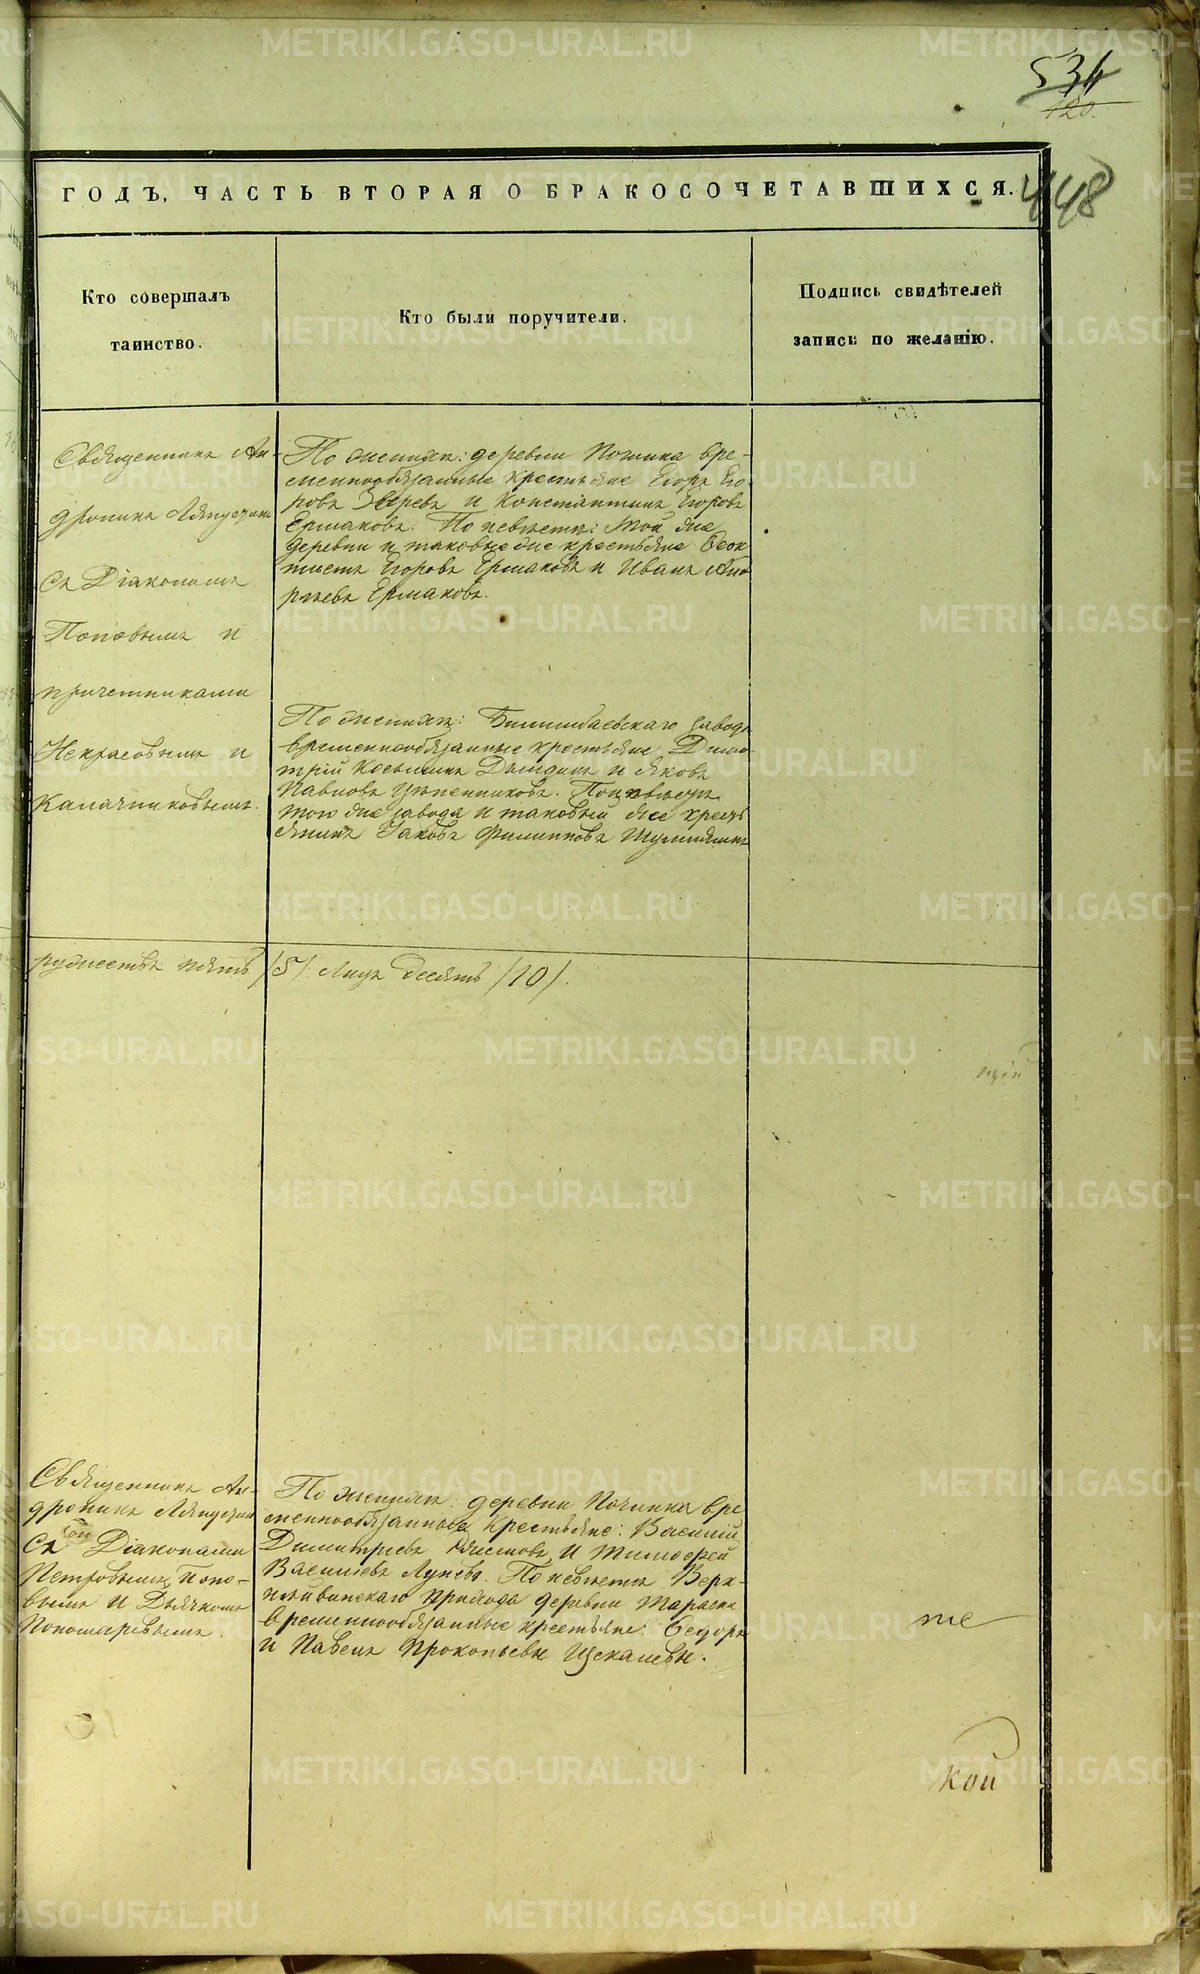 534
120.
448
ГОДЪ, ЧАСТЬ ВТОРАЯ О БРАКОСОЧЕТАВШИХСЯ.
Кто совершалъ
таинство.
Кто были поручители.
Подпись свидѣтелей
записи по желанію.
Священникъ Ан-
дроникъ Ляпустинъ
съ Діакономъ
Поповымъ и
причетниками
Некрасовымъ и
Калачниковымъ.
По женихѣ: деревни Починка вре-
меннообязанные крестьяне Егоръ Его-
ровъ Звѣревъ и Константинъ Егоровъ
Ермаковъ. По невѣстѣ: той же
деревни и таковые же крестьяне Ѳеок-
тистъ Егоровъ Ермаковъ и Иванъ
Ермаковъ.
По женихѣ: Билимбаевскаго завода
временнообязанные крестьяне Дими-
трій Косьминъ Дылдинъ и Яковъ
Павловъ. По невѣстѣ
того же завода и таковый же кресть
янинъ Іаковъ Филипповъ
пять /5/ Лицъ десять /10/.
Священникъ Ан-
дроникъ Ляпустин
съ Діаконами
Петровымъ, Попо-
вымъ и Дьячкомъ
Пономаревымъ.
По женихѣ: деревни Починка вре
меннообязанные крестьяне: Василій
Димитріевъ и Тимоѳей
Васильевъ Луневъ. По невѣстѣ Верх-
нейвинскаго прихода деревни Тараски
временнообязанные крестьяне: Ѳедоръ
и Павелъ Прокопьевы Щекалевы.
же
кой
METRIKI.GASO-URAL.RU